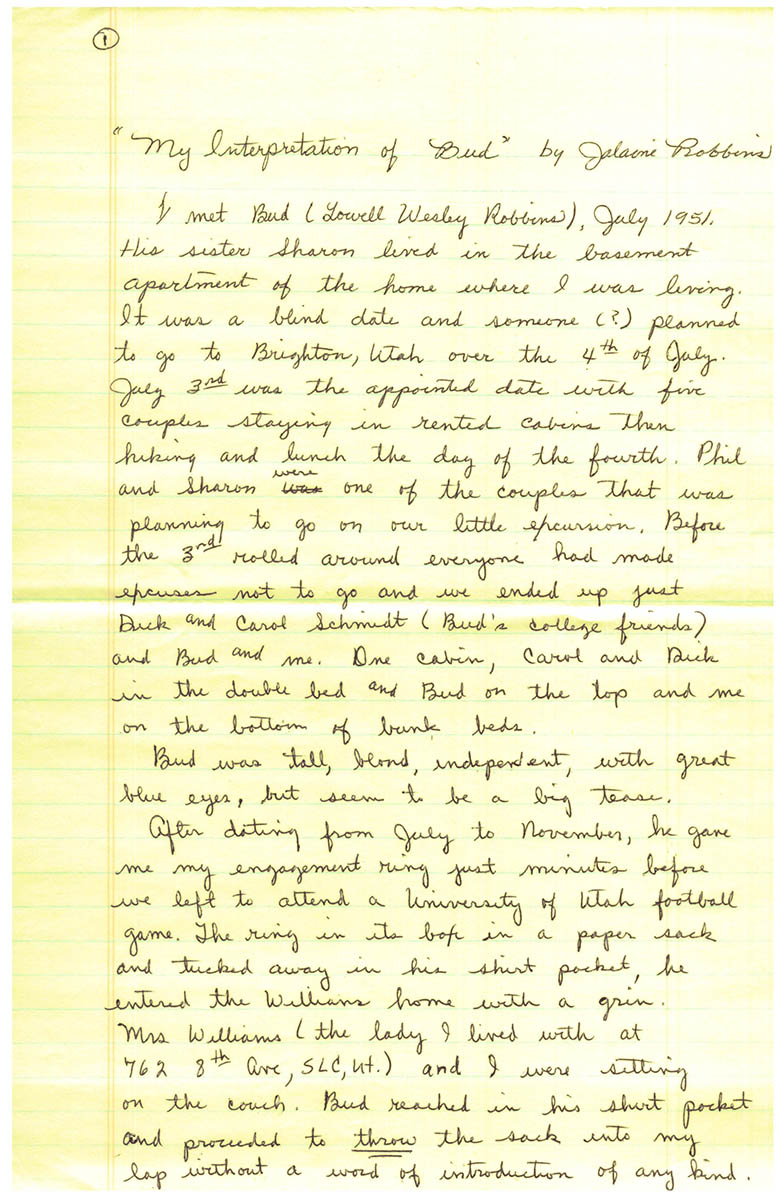 1
"My Interpretation of Bud" by Jalaine Robbins
I met Bud (Lowell Wesley Robbins), July 1951.
His sister Sharon lived in the basement
apartment of the home where I was living.
It was a blind date and someone (?) planned
to go to Brighton, Utah over the 4th of July.
July 3rd was the appointed date with five
couples staying in rented cabins then
hiking and lunch the day of the fourth. Phil
and Sharon was were one of the couples that was
planning to go on our little excursion. Before
the 3rd rolled around everyone had made
excuses not to go and we ended up just
Dick and Carol Schmidt (Bud's college friends)
and Bud and me. One cabin, Carol and Dick
in the double bed and Bud on the top and me
on the bottom of bunk beds.
Bud was tall, blond, independent, with great
blue eyes, but seem to be a big tease.
After dating from July to November, he gave
me my engagement ring just minutes before
we left to attend a University of Utah football
game. The ring in its box in a paper sack
and tucked away in his shirt pocket, he
entered the Williams home with a grin.
Mrs Williams (the lady I lived with at
762 8th Ave, SLC, Ut.) and I were sitting
on the couch. Bud reached in his shirt pocket
and proceeded to throw the sack into my
lap without a word of introduction of any kind.